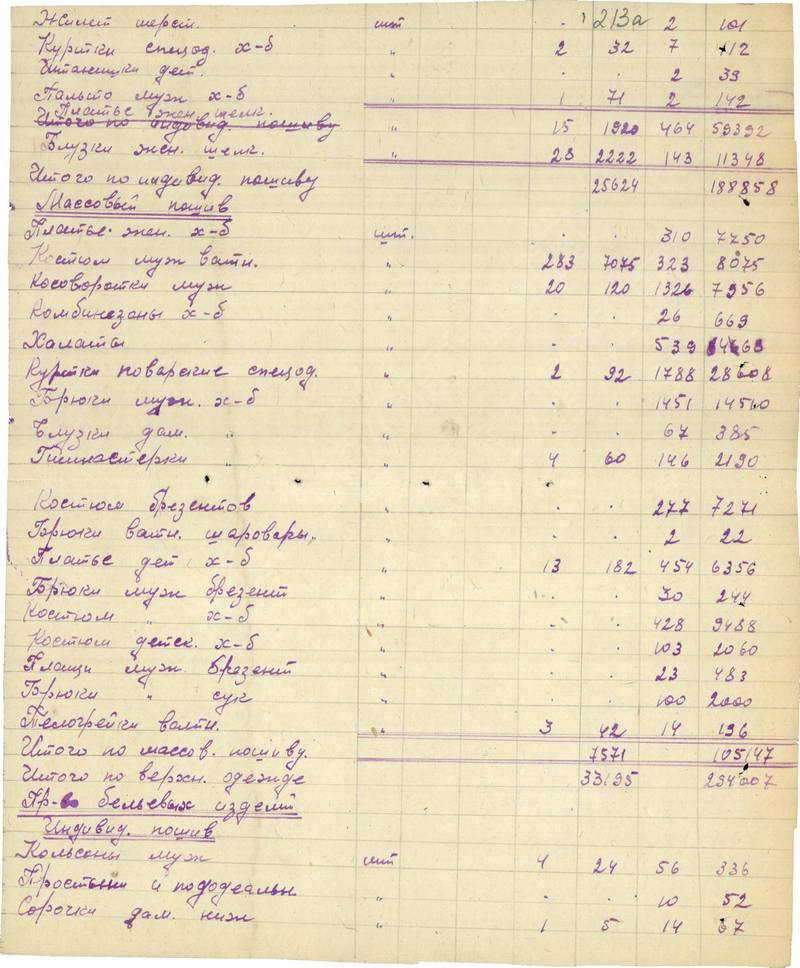 Жилет шерст. шт - 213а 2 101
Куртки спецод. х-б " 2 32 7 112
Штанишки дет. " . . 2 39
Пальто муж х-б " 1 71 2 142
Платье жен. шелк. " 15 1920 464 59392
Итого по индивид. пошиву
Блузки жен. шелк. " 28 2222 143 11348
Итого по индивид. пошиву 25624 188858
Массовый пошив
Платье жен. х-б шт. . . 310 7750
Костюм муж ватн. " 283 7075 323 8075
Косоворотки муж " 20 120 1326 7956
Комбинезоны х-б " . . 26 669
Халаты " - . 539
Куртки поварские спецод. " 2 92 1788 28608
Брюки муж. х-б " . . 1451 14510
Блузки дам. " " - . 67 385
Гимнастерки " " 4 60 146 2190
Костюм брезентов " . . 277 7271
Брюки ватн. шаровары. " . . 2 22
Платье дет х-б " 13 182 454 6356
Брюки муж брезент " . . 30 244
Костюм " х-б " - . 428 9488
Костюм детск. х-б " . . 103 2060
Плащи муж брезент " . . 23 483
Брюки " сук " . . 100 2000
Телогрейки ватн. " 3 42 14 196
Итого по массов. пошиву. 7571 105147
Итого по верхн. одежде 33195 294007
Пр-во бельевых изделий
Индивид. пошив
Кольсоны муж шт 4 24 56 336
Простыни и пододеяльн " . . 10 52
Сорочки дам. ниж " 1 5 14 67